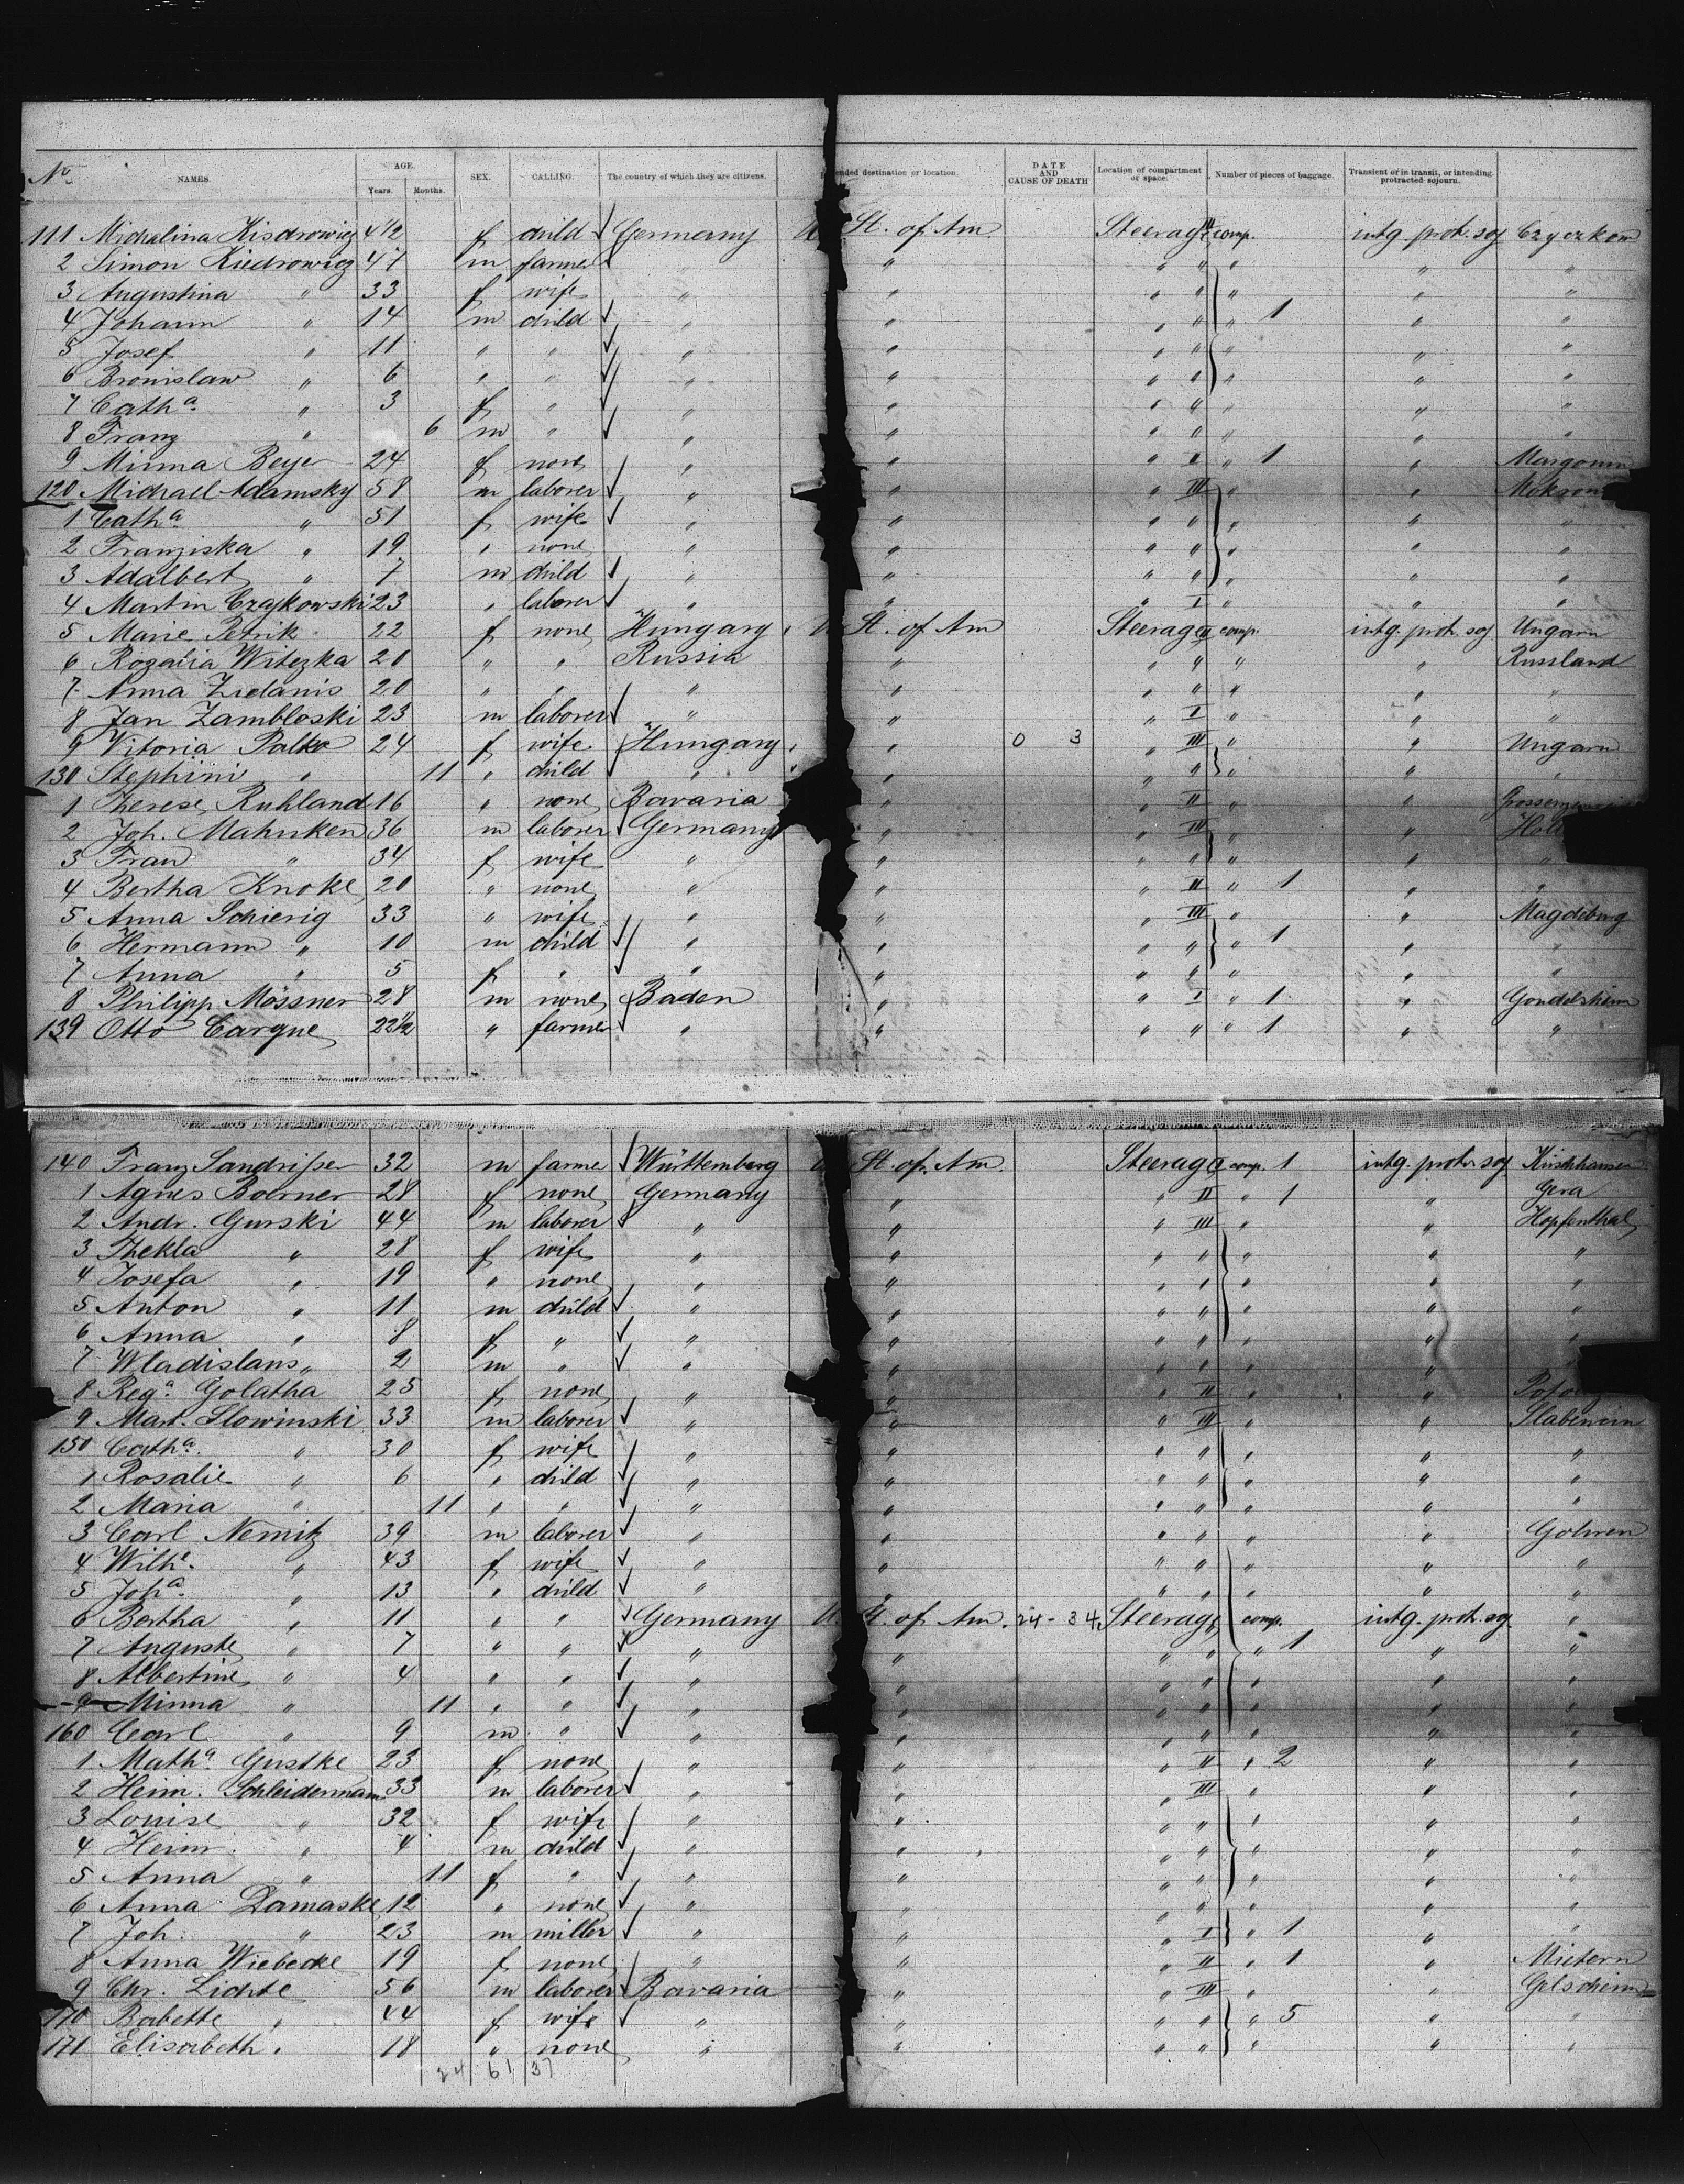 No NAMES. AGE. Years. Months. SEX. CALLING. The country of which they are citizens. ended destination or location. DATE AND CAUSE OF DEATH Location of compartment or space. Number of pieces of baggage. Transient or in transit, or intending protracted sojourn.
111 Michalina Kisdrowicz 4 1/2 f child Germany U St. of Am. Steerage III comp. intg. prot. soj Czyczkow
2 Simon Kiedrowicz 47 m farmer " " " " " " "
3 Augustina " 33 f wife " " " " " " "
4 Johann " 14 m child " " " " " 1 " "
5 Josef " 11 " " " " " " " " "
6 Bronislaw " 6 " " " " " " " " "
7 Catha " 3 f " " " " " " " "
8 Franz " 6 m " " " " " " " "
9 Minna Beyer 24 f none " " " I " 1 " Margonin
120 Michael Adamsky 58 m laborer " " " III " "
1 Catha " 51 f wife " " " " " " "
2 Franziska " 19 " none " " " " " " "
3 Adalbert " 7 m child " " " " " " "
4 Martin Czajkowski 23 " laborer " " " I " " "
5 Marie Petrik 22 f none Hungary U St. of Am Steerage II comp. intg. prot. soj Ungarn
6 Rozalia Witezka 20 " " Russia " " " " " Russland
7 Anna Zidanis 20 " " " " " " " " "
8 Jan Zambloski 23 m laborer " " " I " " "
9 Vitoria Palko 24 f wife Hungary " 0 3 " III " " Ungarn
130 Stephini " 11 " child " " " " " " "
1 Therese Ruhland 16 " none Bavaria " " II " "
2 Joh. Mahnken 36 m laborer Germany " " III " "
3 Frau " 34 f wife " " " " " " "
4 Bertha Knoke 20 " none " " " II " 1 " "
5 Anna Schierig 33 " wife " " " III " " Magdeburg
6 Hermann " 10 m child " " " " " 1 " "
7 Anna " 5 f " " " " " " " "
8 Philipp Mössner 28 m none Baden " " I " 1 " Gondelsheim
139 Otto Cargue 22 1/2 " farmer " " " " " 1 " "
140 Franz Sandrißer 32 m farmer Württemberg U St. of Am. Steerage comp. 1 intg. prot. soj Kirchhausen
1 Agnes Boerner 28 f none Germany " " II " 1 " Gera
2 Andr. Gurski 44 m laborer " " " III " " Hopfenthal
3 Thekla " 28 f wife " " " " " " "
4 Josefa " 19 " none " " " " " " "
5 Anton " 11 m child " " " " " " "
6 Anna " 8 f " " " " " " " "
7 Wladislaus " 2 m " " " " " " " "
8 Rega. Golatha 25 f none " " " II " "
9 Mart. Slowinski 33 m laborer " " " III " " Slabencin
150 Catha. " 30 f wife " " " " " " "
1 Rosalie " 6 " child " " " " " " "
2 Maria " 11 " " " " " " " " "
3 Carl Nemitz 39 m laborer " " " " " " Gohren
4 Wilhe. " 43 f wife " " " " " " "
5 Joha. " 13 " child " " " " " " "
6 Bertha " 11 " " Germany U. St. of Am. 24 - 34 Steerage comp. intg. prot. soj. "
7 Auguste " 7 " " " " " " " 1 " "
8 Albertine " 4 " " " " " " " " "
9 Minna " 11 " " " " " " " " "
160 Carl " 9 m " " " " " " " "
1 Matha Gustke 23 f none " " " II " 2 " "
2 Heinr. Schleidermann 33 m laborer " " " III " " "
3 Louise " 32 f wife " " " " " " "
4 Heinr. " 4 m child " " " " " " "
5 Anna " 11 f " " " " " " " "
6 Anna Damaske 12 " none " " " " " " "
7 Joh. " 23 m miller " " " I " 1 " "
8 Anna Wiebecke 19 f none " " " II " 1 " Mietern
9 Chr. Lichte 56 m laborer Bavaria " " III " " Gelscheim
170 Babette " 44 f wife " " " " " 5 " "
171 Elisabeth " 18 " none " " " " " " "
24 61 37